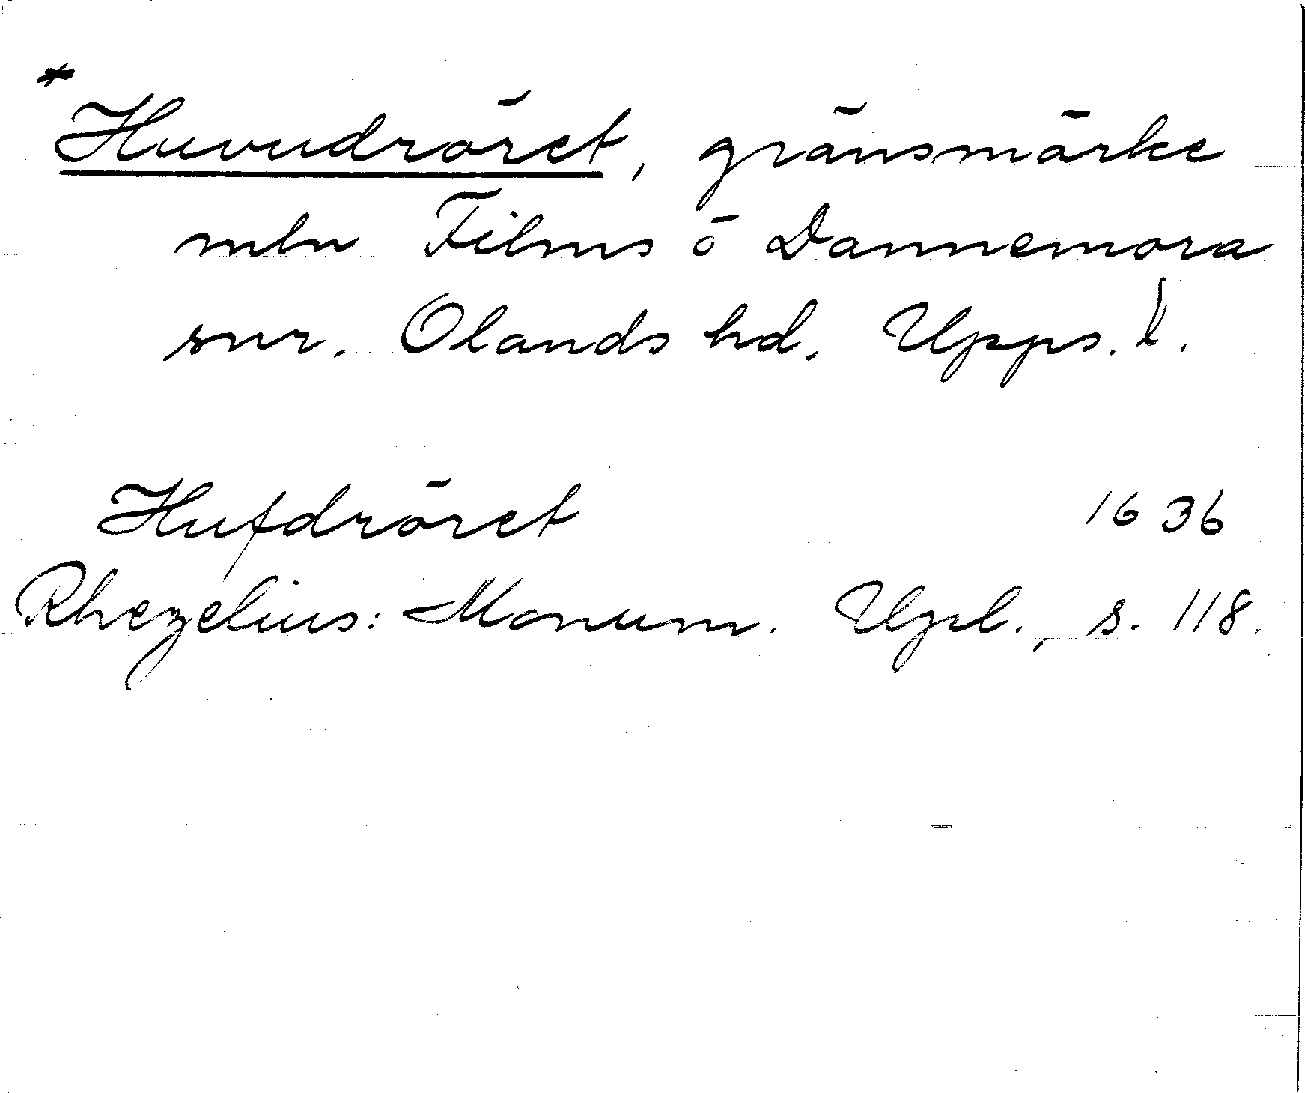 *
Huvudröret, gränsmärke
mln Films o Dannemora
snr. Olands hd. Upps. l.
Hufdröret 1636
Rhezelius: Monum. Upl., s. 118.